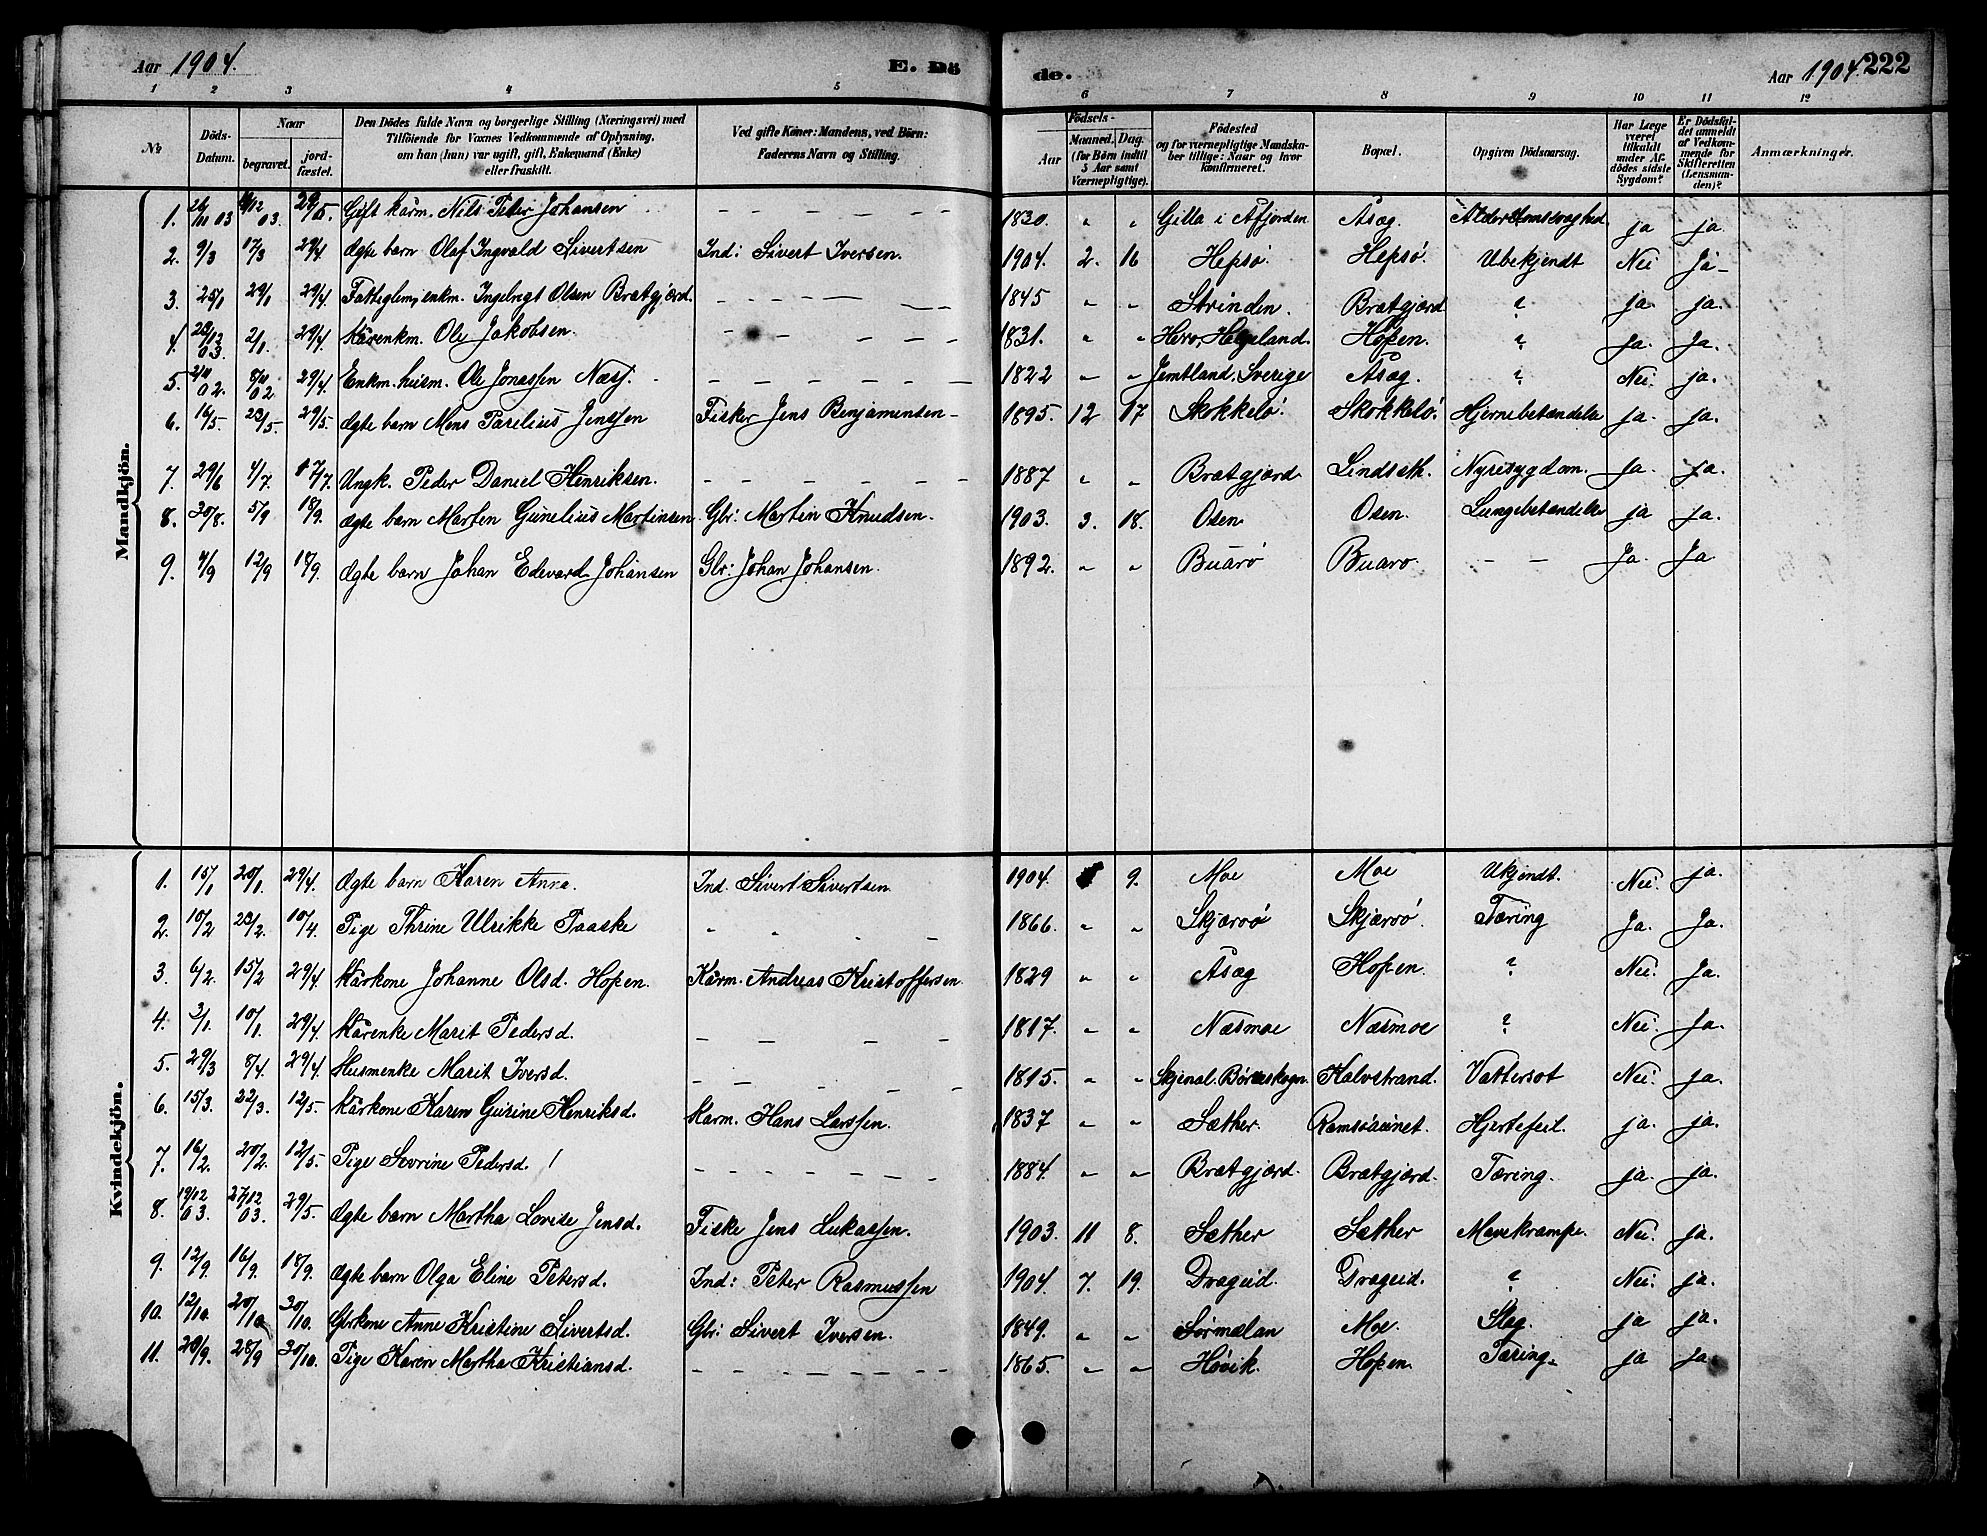 Aar 1904. E. Dö de. Aar 1904. 222
1 2 3 4 5 6 7 8 9 10 11 12
№ Döds-Datum. Naar begravet. jord-fæstet. Den Dödes fulde Navn og borgerlige Stilling (Næringsvei) med Tilföiende for Voxnes Vedkommende af Oplysning, om han (hun) var ugift, gift, Enkemand (Enke) eller fraskilt. Ved gifte Koner: Mandens, ved Börn: Faderens Navn og Stilling. Födsels- Aar Maaned. Dag. (for Börn indtil 5 Aar samt Værnepligtige). Födested og for værnepligtige Mandska-ber tillige: Naar og hvor konfirmeret. Bopæl. Opgiven Dödsaarsag. Har Læge været tilkaldt under Af-dödes sidste Sygdom? Er Dödsfal-det anmeldt af Vedkom-mende for Skifteretten (Lensman-den)? Anmærkninger.
Mandkjön.
1. 26/11 03 /12 03. 29/5. Gift kårm. Nils Peter Johansen — — — 1830. " " Gilla i Åfjorden Åsæg. Alderdomssvaghed ja ja.
2. 9/3 17/3 29/4 Ægte barn Olaf Ingvald Sivertsen Ind: Sivert Iversen. 1904. 2. 16 Hepsö. Hepsö. Ubekjendt Nei Ja
3. 25/1 29/1 29/4. Fattiglem, enkm. Ingebrigt Olsen Bratgjærd. — — — 1845 " " Strinden Bratgjærd ? ja. ja.
4. 23/12 03. 2/1. 29/4. Kårenkm. Ole Jakobsen. — — — 1831. " " Herø, Helgeland. Hopen. ? ja. Ja.
5. 2/11 02. 8/11 02 29/4. Enkm. husm. Ole Jonassen Næss. — — — 1822 " " Jemtland, Sverige Åsæg. ? Nei. ja.
6. 16/5. 23/5. 29/5. Ægte barn Mons Parelius Jenssen Fisker Jens Benjaminsen 1895. 12 17 Skokkelö. Skokkelö. Hjernebetændelse ja. ja.
7. 29/6 4/7. 17/7. Ungk. Peder Daniel Henriksen. — — — 1887 " " Bratgjærd Lindseth. Nyresygdom. Ja. ja.
8. 30/8. 5/9 18/9. Ægte barn Morten Gunelius Martinsen Gbr: Martin Knudsen. 1903. 3. 18. Osen Osen. Lungebetændelse ja ja.
9. 4/9 12/9 18/9. Ægte barn Johan Edevard Johansen Gbr: Johan Johansen. 1892. " " Buarö Buarö. — — Ja. Ja
Kvindekjön.
1. 15/1 20/1. 29/4. Ægte barn Karen Anna. Ind. Sivert Sivertsen 1904. 9. Moe Moe Ukjendt. Nei. ja.
2. 10/2 23/2. 10/4. Pige Thrine Ulrikke Paaske " " " — 1866. " " Skjærvö Skjærvö. Tæring Ja. Ja.
3. 6/2. 15/2 29/4 Kårkone Johanne Olsd. Hopen. Kårm. Andreas Kristoffersen 1829 " " Åsæg Hopen. ? Nei. Ja.
4. 3/1. 10/1. 29/4. Kårenke Marit Pedersd. — — — 1817. " " Næsmoe Næsmoe ? Nei. Ja.
5. 29/3 8/4. 29/4. Husmenke Marit Iversd. — — — 1815. " " Skjenal. Børseskogn. Kalvstrand. Vattersot Nei. ja.
6. 15/3. 22/3. 12/5. Kårkone Karen Gurine Henriksd. Karm. Hans Larssen. 1837 " " Sæther. Ramsöaunet. Hjertefeil. ja. ja.
7. 16/2. 20/2. 12/5. Pige Severine Pedersd. — — — 1884. " " Bratgjærd. Bratgjærd. Tæring. ja ja.
8. 19/12 03. 27/12 03. 29/5. Ægte barn Martha Lovise Jensd. Fiske Jens Lukassen. 1903. 11 8. Sæther Sæther Mavekrampe. Nei. ja.
9. 12/9. 16/9. 18/9. Ægte barn Olga Eline Petersd. Ind: Peter Rasmussen 1904. 7. 19. Drageid. Drageid. ? Nei. ja.
10. 12/10. 20/10 30/10. Gbrkone Anne Kristine Sivertsd. Gbr: Sivert Iversen. 1849. " " Sörmelan Moe. Slag. ja ja.
11. 20/9. 28/9 30/10. Pige Karen Martha Kristiansd. — — — 1865 " " Hovik. Hopen. Tæring. ja ja